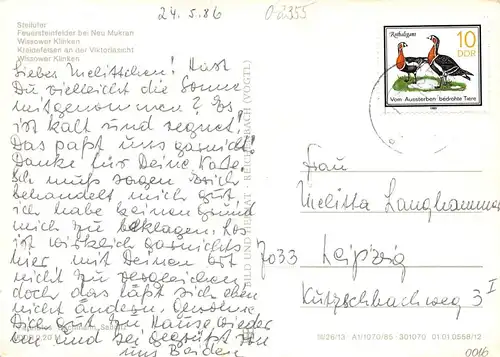 24.5.86
0-2355
Steilufer
Feuersteinfelder bei Neu Mukran
Wissower Klinken
Kreidefelsen an der Viktoriasicht
Wissower Klinken
Liebes Melittchen! Hast
Du vielleicht die Sonne
mitgenommen? Es
ist kalt und regnet!
Das paßt uns garnicht!
Danke für Deine Karte.
Ich muß sagen
behandelt mich gut
ich habe keinen Grund
mich zu beklagen. Es
ist wirklich garnichts
hier mit Deinem Ort
nicht zu vergleichen
doch das läßt sich eben
nicht ändern.
zu Hause wieder
und sei gegrüßt von
uns Beiden
BILD UND HEIMAT · REICHENBACH (VOGTL)
Rothalsgans
10
DDR
Vom Aussterben bedrohte Tiere
1985
Frau
Melitta Langhammer
7033 Leipzig
Kutzschbachweg 3 I
III/26/13 A1/1070/85 · 301070 01.01.0568/12
0016